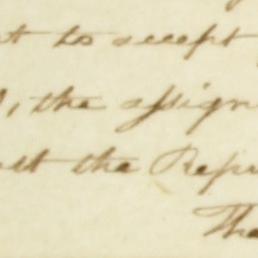 t to accept
, the assign
the Repr
The